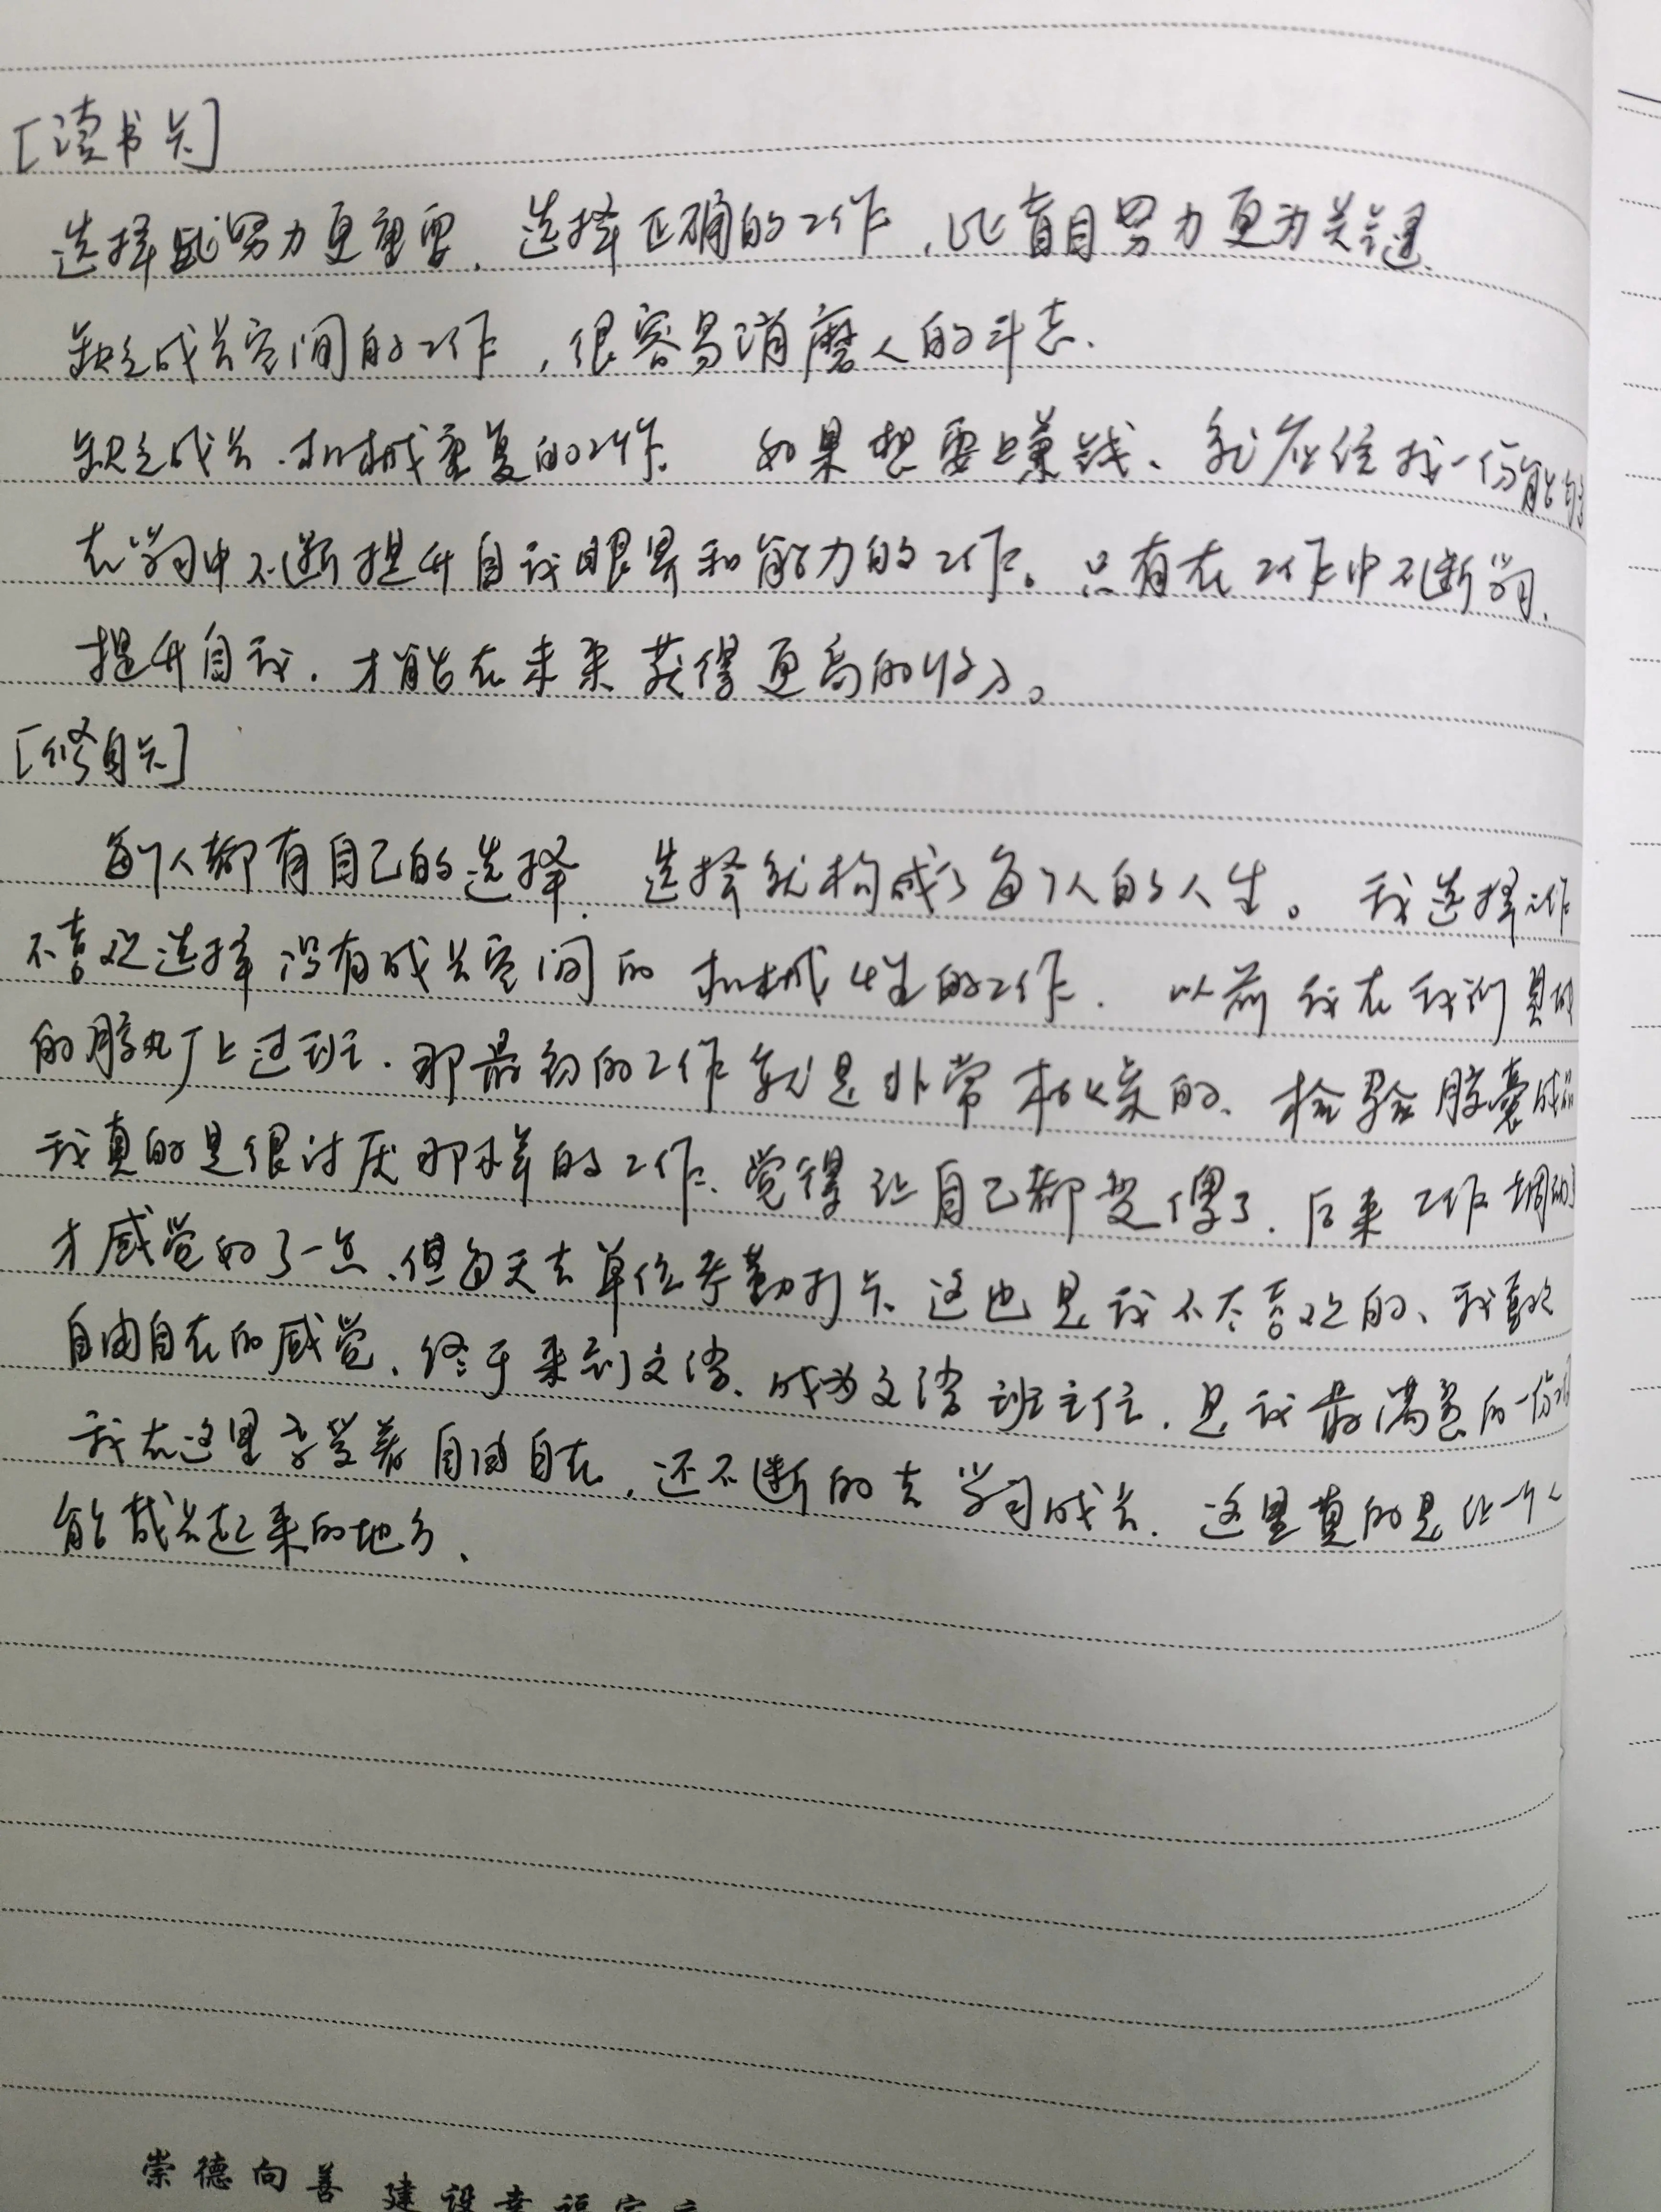 [读书卡]
选择比努力更重要。选择正确的工作，比盲目努力更为关键。
缺乏成长空间的工作，很容易消磨人的斗志。
缺乏成长、机械重复的工作。 如果想要赚钱、就应该找一份能够
在学习中不断提升自我眼界和能力的工作。只有在工作中不断学习、
提升自我，才能在未来获得更高的收入。
[修身卡]
每个人都有自己的选择，选择就构成了每个人的人生。我选择工作
不喜欢选择没有成长空间的机械性的工作。以前我在我们
的胶丸厂上过班，那最初的工作就是非常枯燥的、检验胶囊成品
我真的是很讨厌那样的工作、觉得让自己都变傻了，后来工作调动
才感觉好了一点，但每天去单位考勤打卡、这也是我不太喜欢的、我喜欢
自由自在的感觉，终于来到文涛、成为文涛班主任，是我最满意的一份
我在这里享受着自由自在，还不断的去学习成长。这里真的是让一个人
能成长起来的地方、
崇德向善 建设幸福家